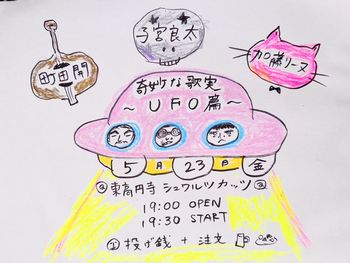 子宮良太
町田開
加藤リーヌ
奇妙な歌実
～UFO篇～
5月23日金
@東高円寺 シュワルツカッツ@
19:00 OPEN
19:30 START
投げ銭 + 注文